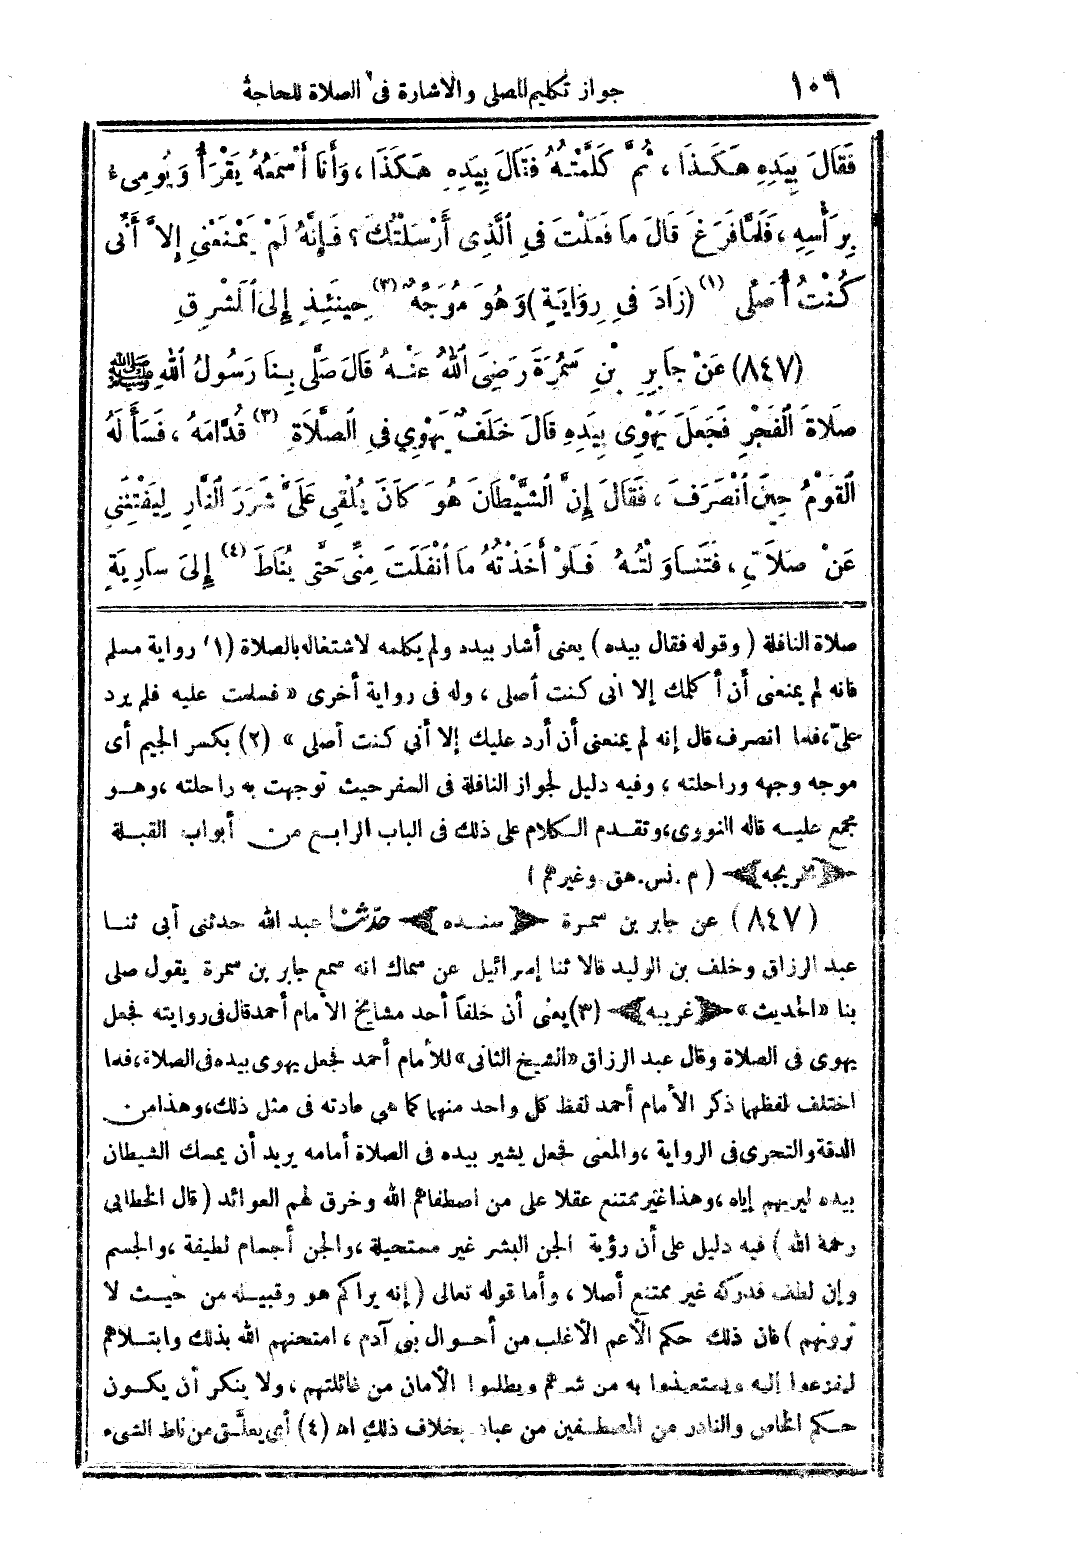 ١٠٦ جواز تكليم المصلى والاشارة فى الصلاة للحاجة
فَقَالَ بِيَدِهِ هَكَذَا ، ثُمَّ كَلَّمْتُهُ فَقَالَ بِيَدِهِ هَكَذَا ، وَأَنَا أَسْمَعُهُ يَقْرَأُ وَيُومِىءُ
بِرَأْسِهِ ، فَلَمَّا فَرَغَ قَالَ مَا فَعَلْتَ فِي الَّذِى أَرْسَلْتُكَ ؟ فَإِنَّهُ لَمْ يَمْنَعْنِى إِلاَّ أَنِّى
كُنْتُ أُصَلِّى (١) (زَادَ فِى رِوَايَةٍ) وَهُوَ مُوَجِّهٌ (٢) حِينَئِذٍ إِلَى الْمَشْرِقِ
(٨٤٧) عَنْ جَابِرِ بْنِ سَمُرَةَ رَضِىَ اللهُ عَنْهُ قَالَ صَلَّى بِنَا رَسُولُ اللهِ ﷺ
صَلاَةَ الْفَجْرِ فَجَعَلَ يَهْوِى بِيَدِهِ قَالَ خَلَفٌ يَهْوِي فِي الصَّلاَةِ (٣) قُدَّامَهُ ، فَسَأَلَهُ
الْقَوْمُ حِينَ انْصَرَفَ ، فَقَالَ إِنَّ الشَّيْطَانَ هُوَ كَانَ يُلْقِى عَلَىَّ شَرَرَ النَّارِ لِيَفْتِنَنِى
عَنْ صَلاَتِى ، فَتَنَاوَلْتُهُ فَلَوْ أَخَذْتُهُ مَا انْفَلَتَ مِنِّى حَتَّى يُنَاطَ (٤) إِلَى سَارِيَةٍ
صلاة النافلة (وقوله فقال بيده) يعنى أشار بيده ولم يكلمه لاشتغاله بالصلاة (١) رواية مسلم
فانه لم يمنعنى أن أكلمك إلا انى كنت أصلى ، وله فى رواية أخرى « فسلمت عليه فلم يرد
علىّ ، فلما انصرف قال إنه لم يمنعنى أن أرد عليك إلا أنى كنت أصلى » (٢) بكسر الجيم أى
موجه وجهه وراحلته ، وفيه دليل لجواز النافلة فى السفر حيث توجهت به راحلته ، وهو
مجمع عليه قاله النووى ، وتقدم الكلام على ذلك فى الباب الرابع من أبواب القبلة
﴿تخريجه﴾ (م . نس . هق . وغيرهم)
(٨٤٧) عن جابر بن سمرة ﴿سنده﴾ حدثنا عبد الله حدثنى أبى ثنا
عبد الرزاق وخلف بن الوليد قالا ثنا إسرائيل عن سماك انه سمع جابر بن سمرة يقول صلى
بنا « الحديث » ﴿غريبه﴾ (٣) يعنى أن خلفا أحد مشايخ الأمام أحمد قال فى روايته فجعل
يهوى فى الصلاة وقال عبد الرزاق « الشيخ الثانى » للأمام أحمد فجعل يهوى بيده فى الصلاة ، فلما
اختلف لفظهما ذكر الأمام أحمد لفظ كل واحد منهما كما هى عادته فى مثل ذلك ، وهذا من
الدقة والتحرى فى الرواية ، والمعنى فجعل يشير بيده فى الصلاة أمامه يريد أن يمسك الشيطان
بيده ليريهم إياه ، وهذا غير ممتنع عقلا على من اصطفاهم الله وخرق لهم العوائد (قال الخطابى
رحمه الله) فيه دليل على أن رؤية الجن البشر غير مستحيلة ، والجن أجسام لطيفة ، والجسم
وإن لطف فدركه غير ممتنع أصلا ، وأما قوله تعالى (إنه يراكم هو وقبيله من حيث لا
ترونهم) فان ذلك حكم الأعم الأغلب من أحوال بنى آدم ، امتحنهم الله بذلك وابتلاهم
ليفزعوا إليه ويستعيذوا به من شرهم ويطلبوا الأمان من غائلتهم ، ولا ينكر أن يكون
حكم الخاص والنادر من المصطفين من عباده بخلاف ذلك اه (٤) أى يعلَّق من ناط الشىء